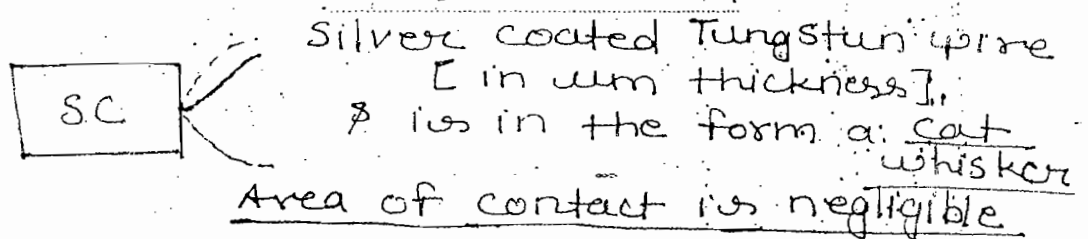 Silver coated Tungstun wire
S.C
[in um thickness].
$ is in the form a cat
whisker
Area of contact is negligible